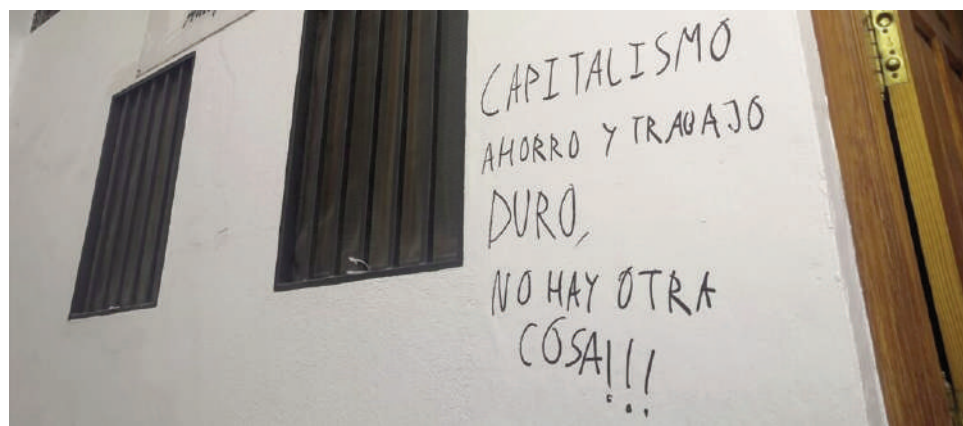 CAPITALISMO
AHORRO Y TRABAJO
DURO,
NO HAY OTRA
COSA!!!